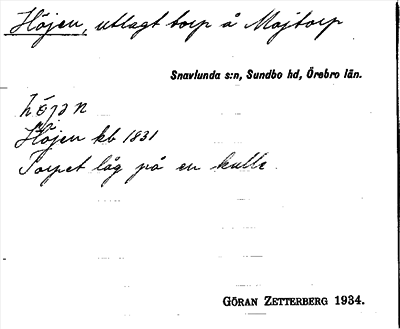 Höjen, utlagt torp å Majtorp
Snavlunda s:n, Sundbo hd, Örebro län.
höjan
Höjen kb 1831
Torpet låg på en kulle.
GÖRAN ZETTERBERG 1934.